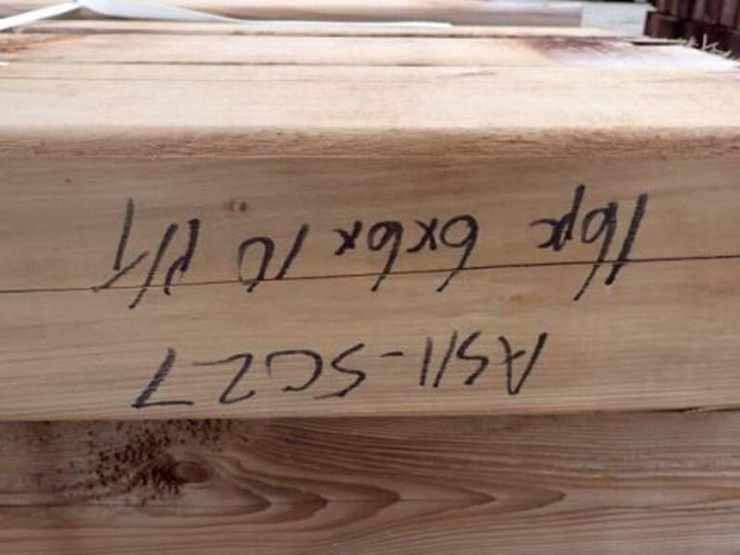 AS11-SC27
16pc 6x6x10 P/T